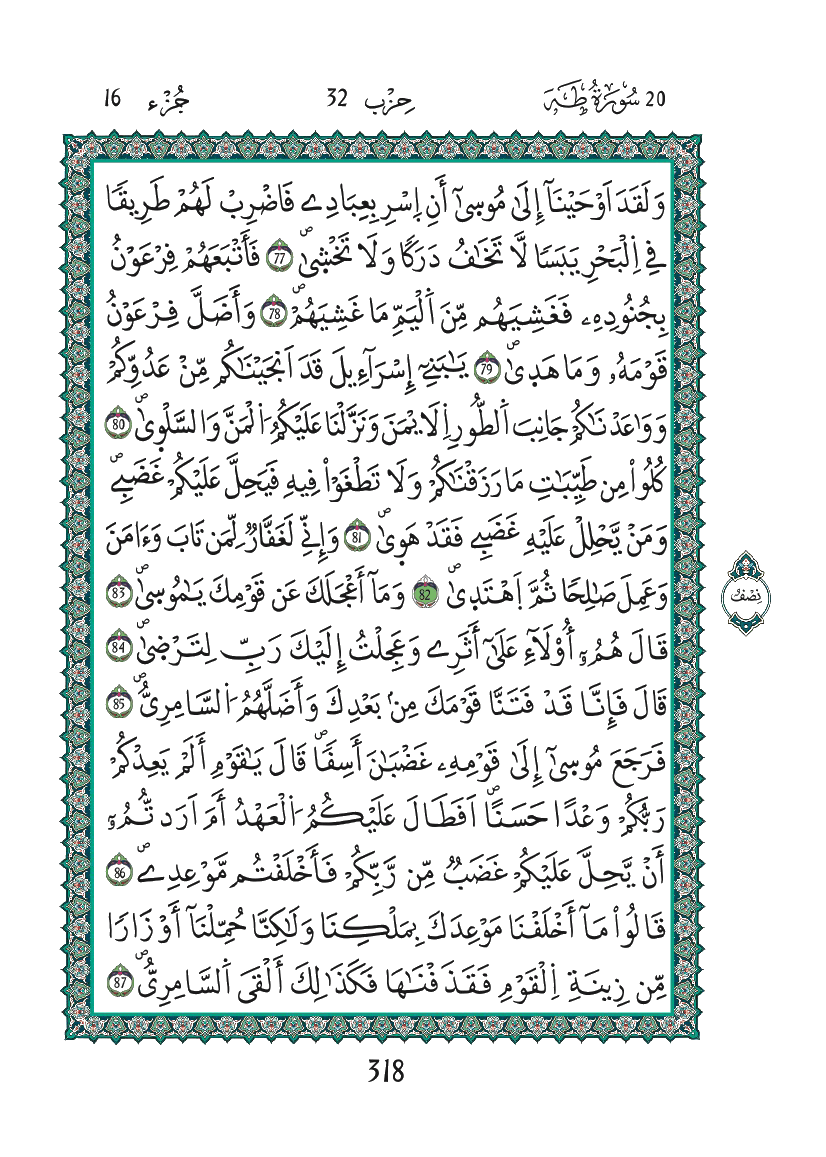 20 سُورَةُ طَهَ حِزْب 32 جُزْء 16
وَلَقَدَ اَوْحَيْنَآ إِلَىٰ مُوسَىٰٓ أَنِ اِسْرِ بِعِبَادِے فَاضْرِبْ لَهُمْ طَرِيقًا
فِے اِ۬لْبَحْرِ يَبَسًا لَّا تَخَٰفُ دَرَكًا وَلَا تَخْش۪ىٰۖ 77 فَأَتْبَعَهُمْ فِرْعَوْنُ
بِجُنُودِهِۦ فَغَشِيَهُم مِّنَ اَ۬لْيَمِّ مَا غَشِيَهُمْۖ 78 وَأَضَلَّ فِرْعَوْنُ
قَوْمَهُۥ وَمَا هَد۪ىٰۖ 79 يَٰبَنِےٓ إِسْرَآءِيلَ قَدَ اَنجَيْنَٰكُم مِّنْ عَدُوِّكُمْ
وَوَٰعَدْنَٰكُمْ جَانِبَ اَ۬لطُّورِ اِ۬لَايْمَنَ وَنَزَّلْنَا عَلَيْكُمُ اُ۬لْمَنَّ وَالسَّلْو۪ىٰۖ 80
كُلُواْ مِن طَيِّبَٰتِ مَا رَزَقْنَٰكُمْ وَلَا تَطْغَوْاْ فِيهِ فَيَحِلَّ عَلَيْكُمْ غَضَبِےۖ
وَمَنْ يَّحْلِلْ عَلَيْهِ غَضَبِے فَقَدْ هَو۪ىٰۖ 81 وَإِنِّے لَغَفَّارٌ لِّمَن تَابَ وَءَامَنَ
وَعَمِلَ صَٰلِحًا ثُمَّ اَ۪هْتَد۪ىٰۖ 82 وَمَآ أَعْجَلَكَ عَن قَوْمِكَ يَٰمُوس۪ىٰۖ 83
نِصْفُ
قَالَ هُمُۥٓ أُوْلَآءِ عَلَىٰٓ أَثَرِے وَعَجِلْتُ إِلَيْكَ رَبِّ لِتَرْض۪ىٰۖ 84
قَالَ فَإِنَّا قَدْ فَتَنَّا قَوْمَكَ مِنۢ بَعْدِكَ وَأَضَلَّهُمُ اُ۬لسَّامِرِيُّۖ 85
فَرَجَعَ مُوسَىٰٓ إِلَىٰ قَوْمِهِۦ غَضْبَٰنَ أَسِفًاۖ قَالَ يَٰقَوْمِ أَلَمْ يَعِدْكُمْ
رَبُّكُمْ وَعْدًا حَسَنًاۖ اَفَطَالَ عَلَيْكُمُ اُ۬لْعَهْدُ أَمَ اَرَدتُّمُۥٓ
أَنْ يَّحِلَّ عَلَيْكُمْ غَضَبٌ مِّن رَّبِّكُمْ فَأَخْلَفْتُم مَّوْعِدِےۖ 86
قَالُواْ مَآ أَخْلَفْنَا مَوْعِدَكَ بِمَلْكِنَا وَلَٰكِنَّا حُمِّلْنَآ أَوْزَارًا
مِّن زِينَةِ اِ۬لْقَوْمِ فَقَذَفْنَٰهَا فَكَذَٰلِكَ أَلْقَى اَ۬لسَّامِرِيُّۖ 87
318